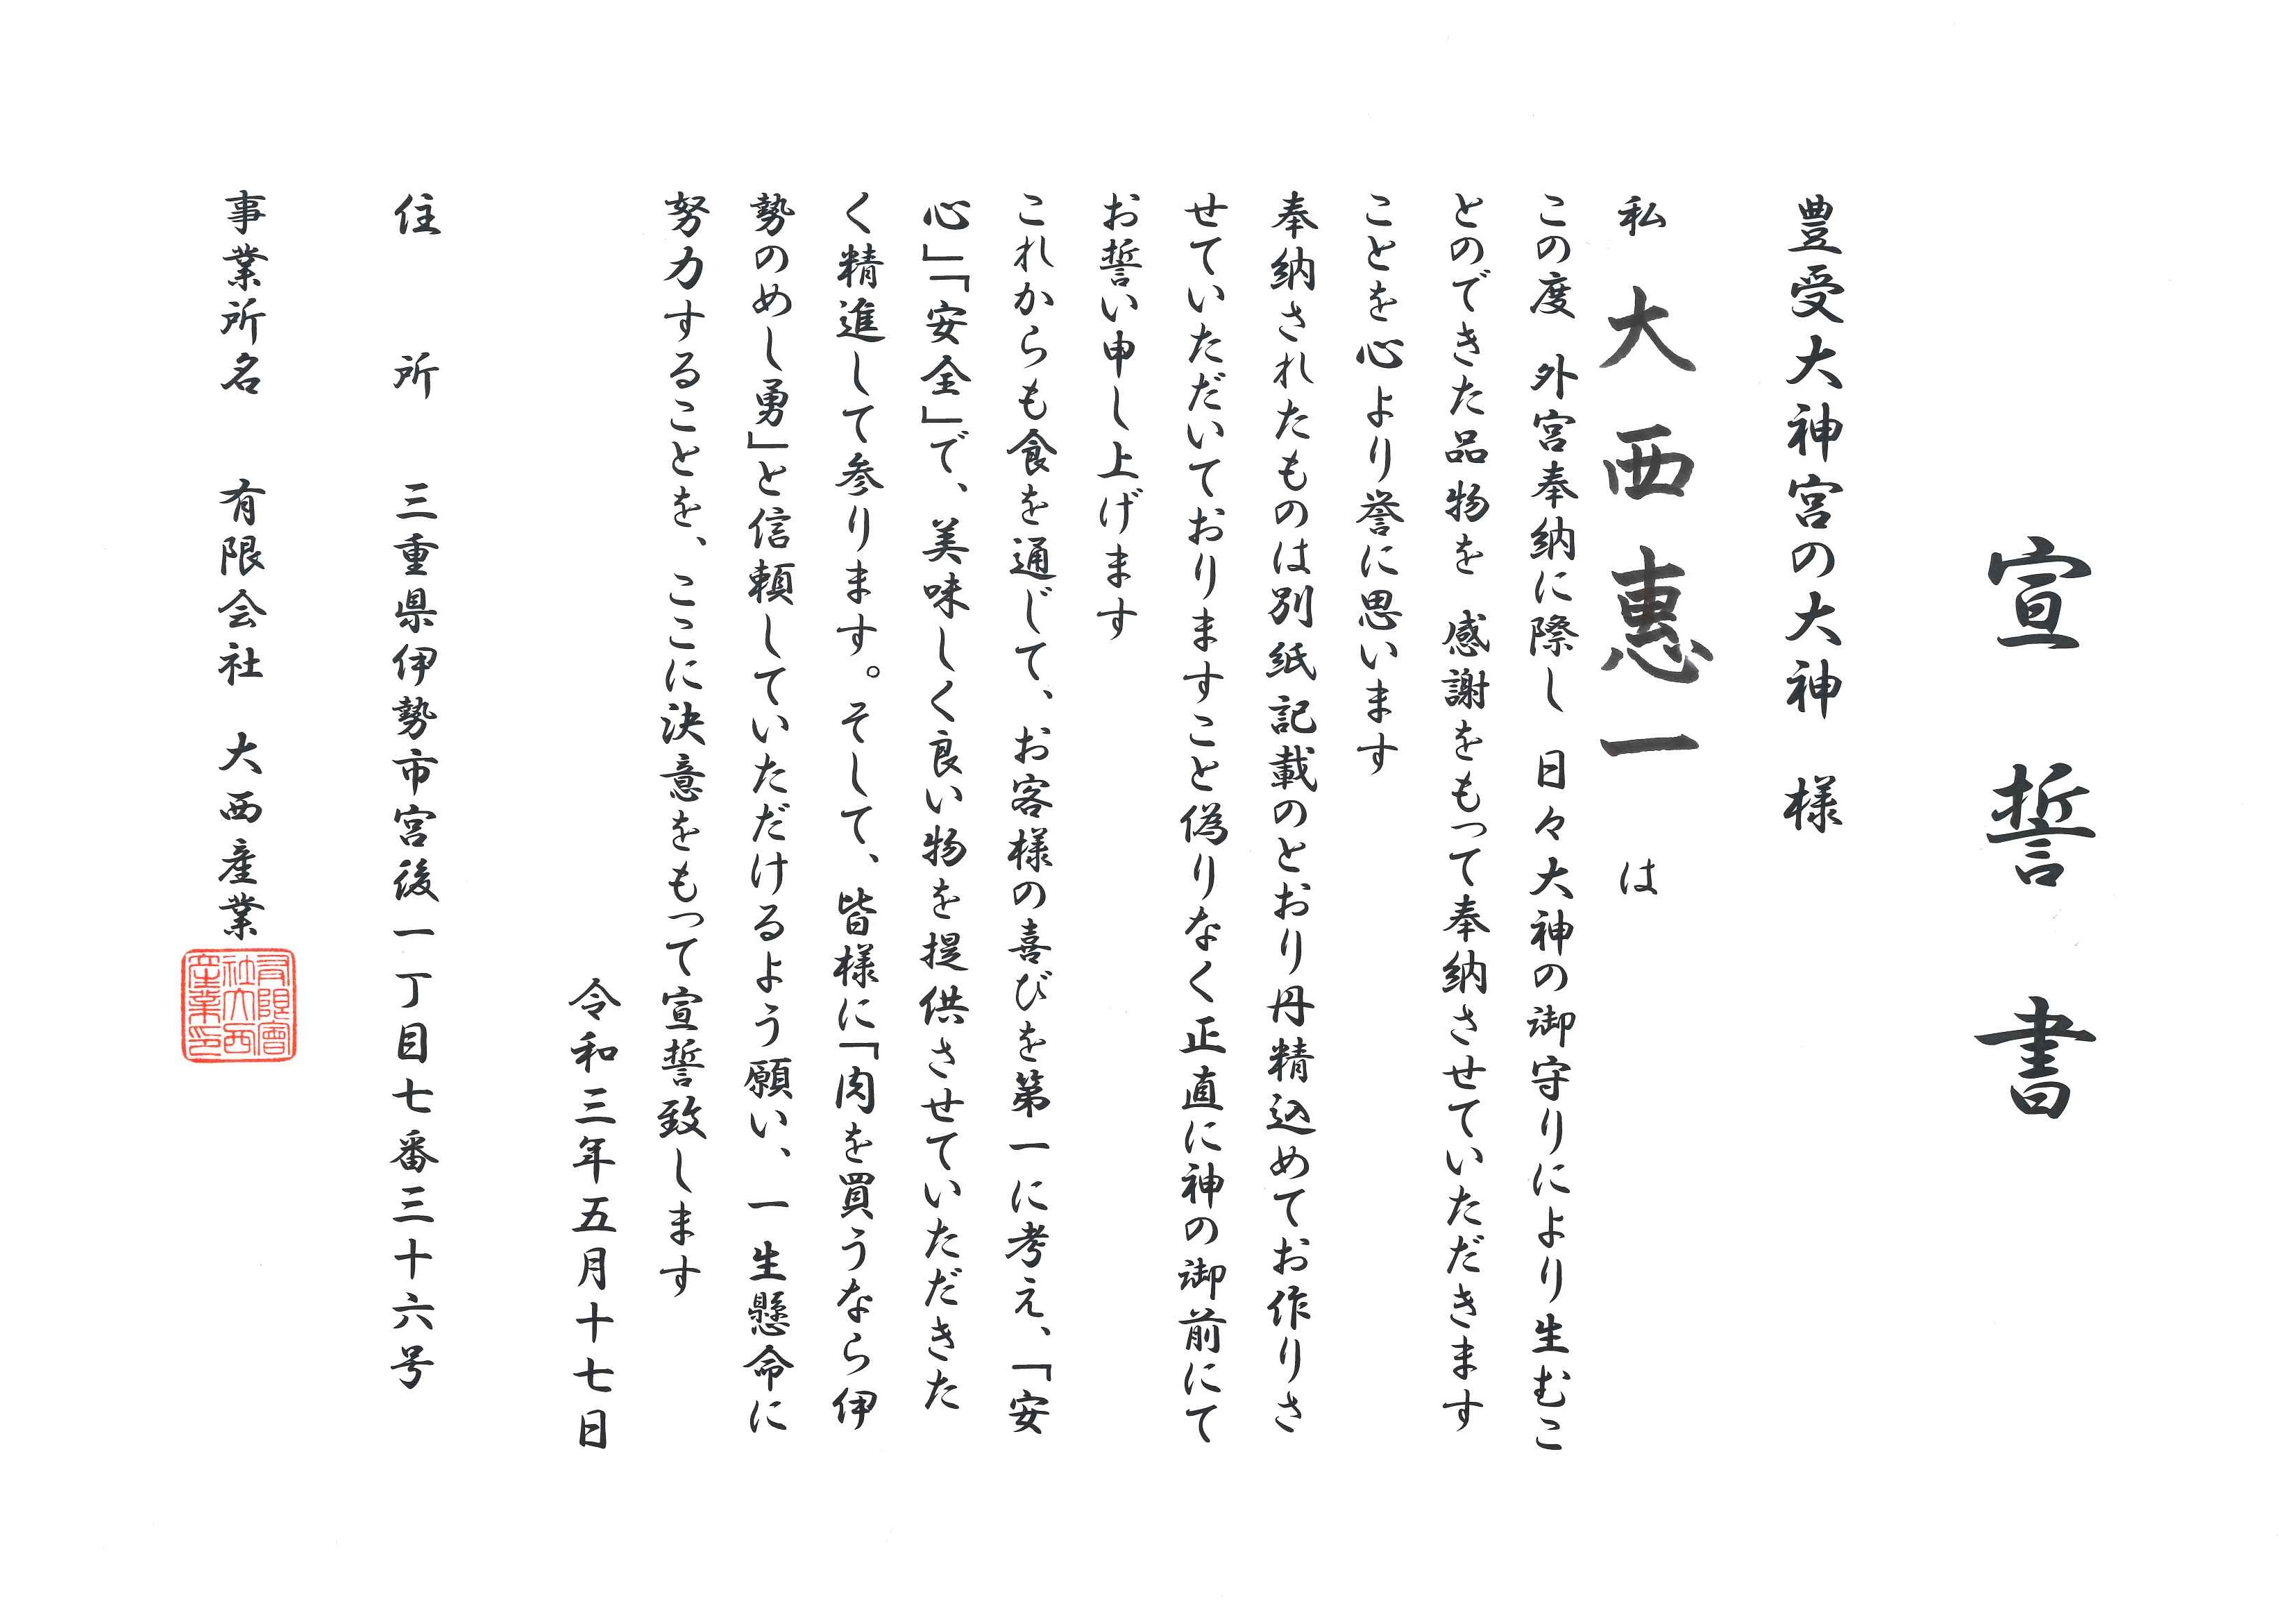 宣誓書
豊受大神宮の大神 様
私 大西惠一 は
この度 外宮奉納に際し 日々大神の御守りにより生むこ
とのできた品物を 感謝をもって奉納させていただきます
ことを心より誉に思います
奉納されたものは別紙記載のとおり丹精込めてお作りさ
せていただいておりますこと偽りなく正直に神の御前にて
お誓い申し上げます
これからも食を通じて、お客様の喜びを第一に考え、「安
心」「安全」で、美味しく良い物を提供させていただきた
く精進して参ります。そして、皆様に「肉を買うなら伊
勢のめし勇」と信頼していただけるよう願い、一生懸命に
努力することを、ここに決意をもって宣誓致します
令和三年五月十七日
住所 三重県伊勢市宮後一丁目七番三十六号
事業所名 有限会社 大西産業
有限會
社大西
産業印